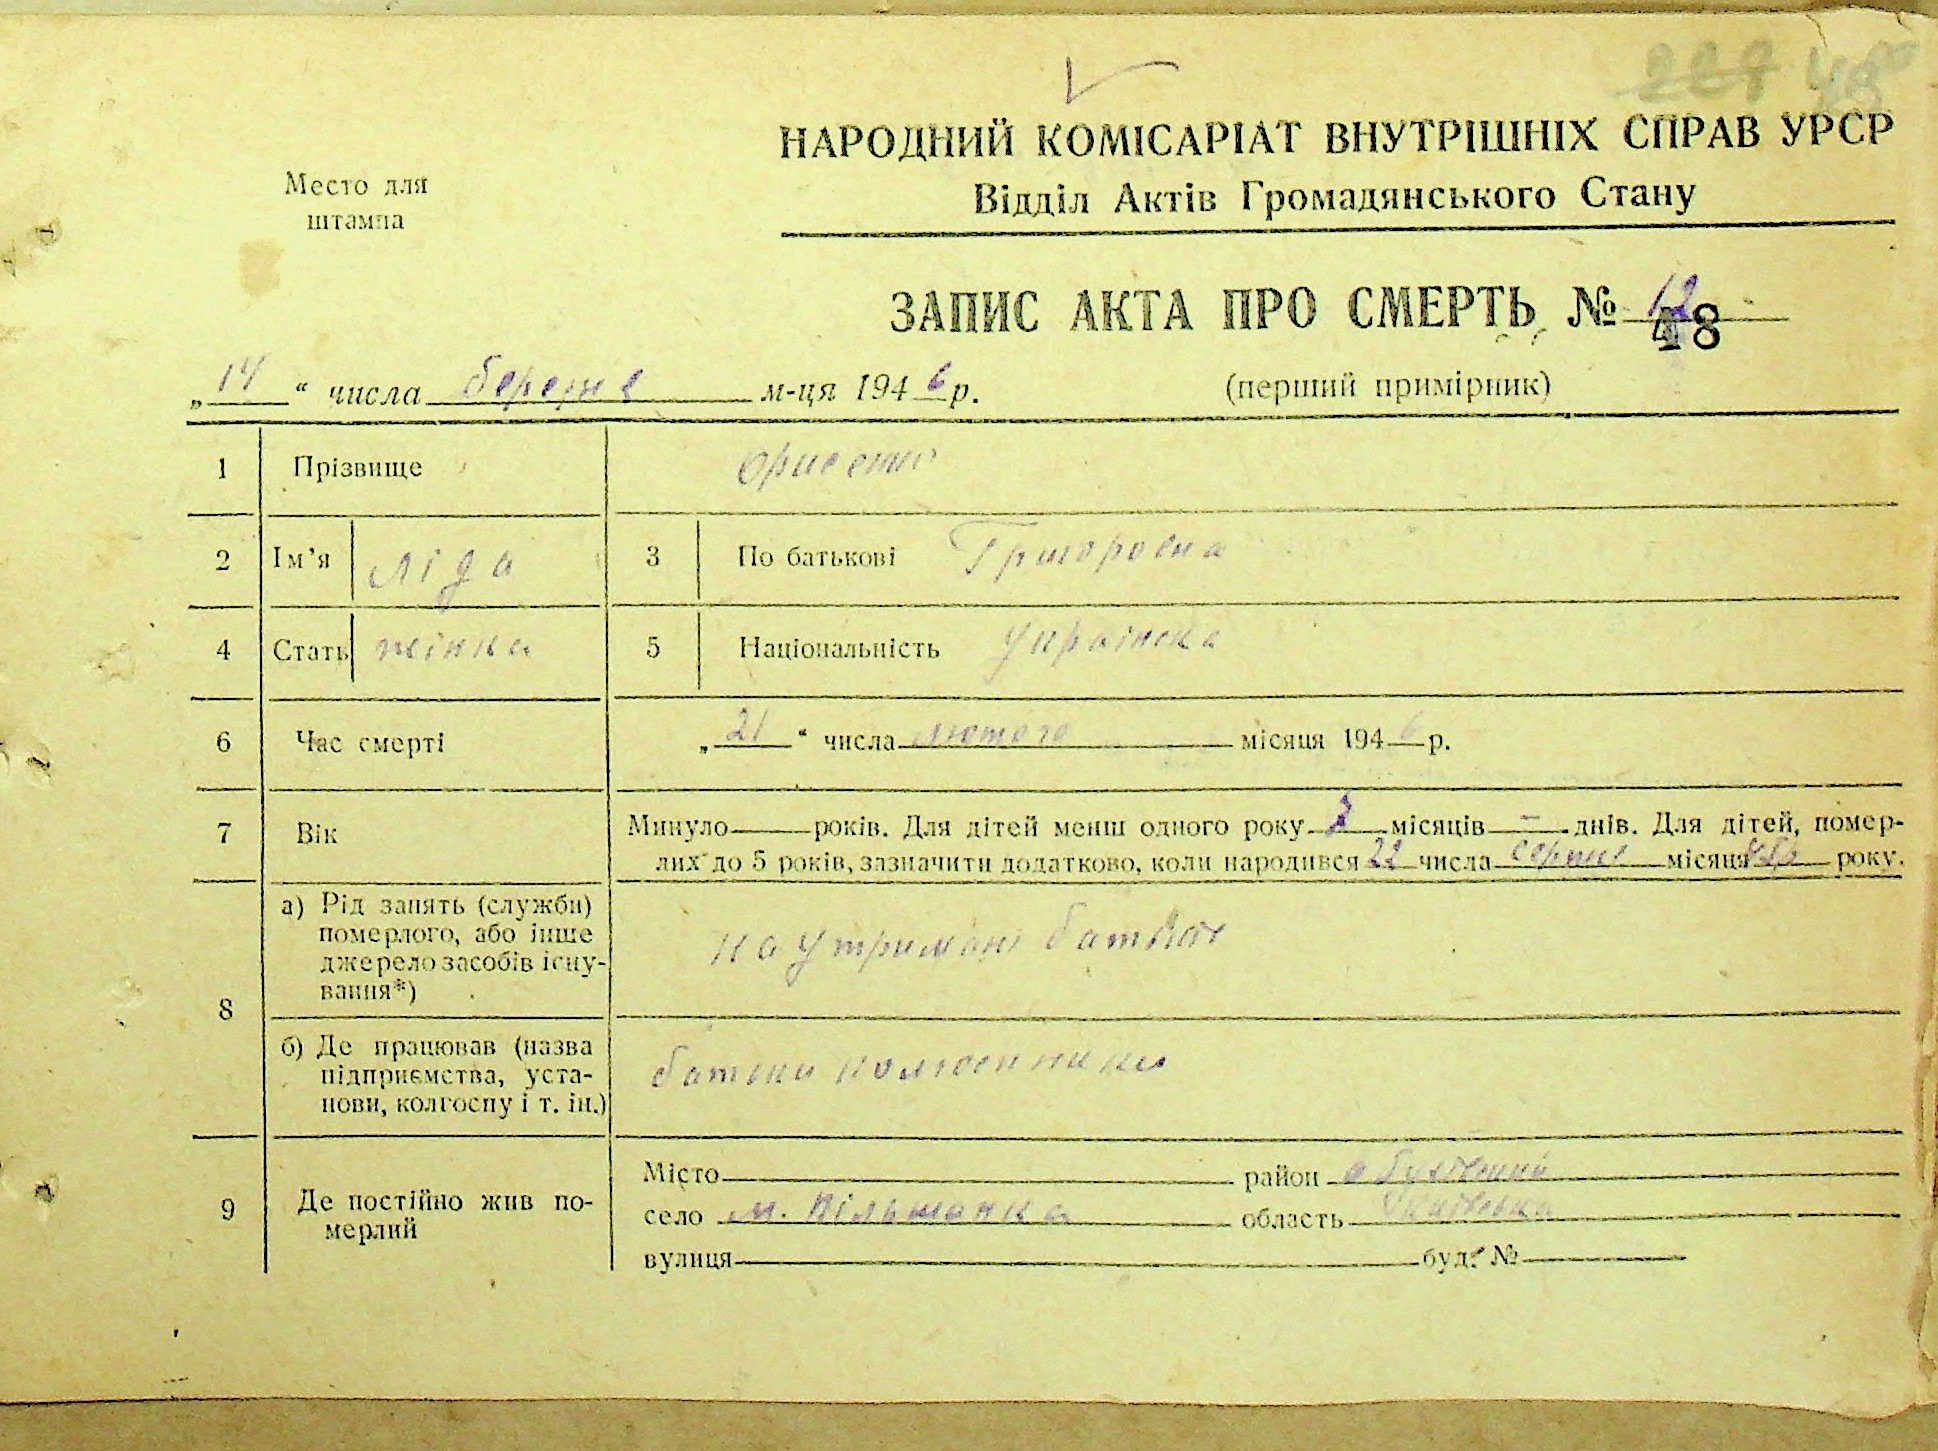 Место для
штампа
НАРОДНИЙ КОМІСАРІАТ ВНУТРІШНІХ СПРАВ УРСР
Відділ Актів Громадянського Стану
ЗАПИС АКТА ПРО СМЕРТЬ № 12
48
„14“ числа березня м-ця 1946 р.
(перший примірник)
1 Прізвище
2 Ім’я Ліда 3 По батькові Григоровна
4 Стать жінка 5 Національність Українка
6 Час смерті „21“ числа лютого місяця 1946 р.
7 Вік Минуло років. Для дітей менш одного року місяців — днів. Для дітей, помер-
лих до 5 років, зазначити додатково, коли народився 22 числа серпня місяця року.
8 а) Рід занять (служби)
померлого, або інше
джерело засобів існу-
вання*)
на утримані батьків
б) Де працював (назва
підприємства, уста-
нови, колгоспу і т. ін.)
батьки колгоспники
9 Де постійно жив по-
мерлий
Місто район Обухівський
село м. Вільшанка область Київська
вулиця буд. №